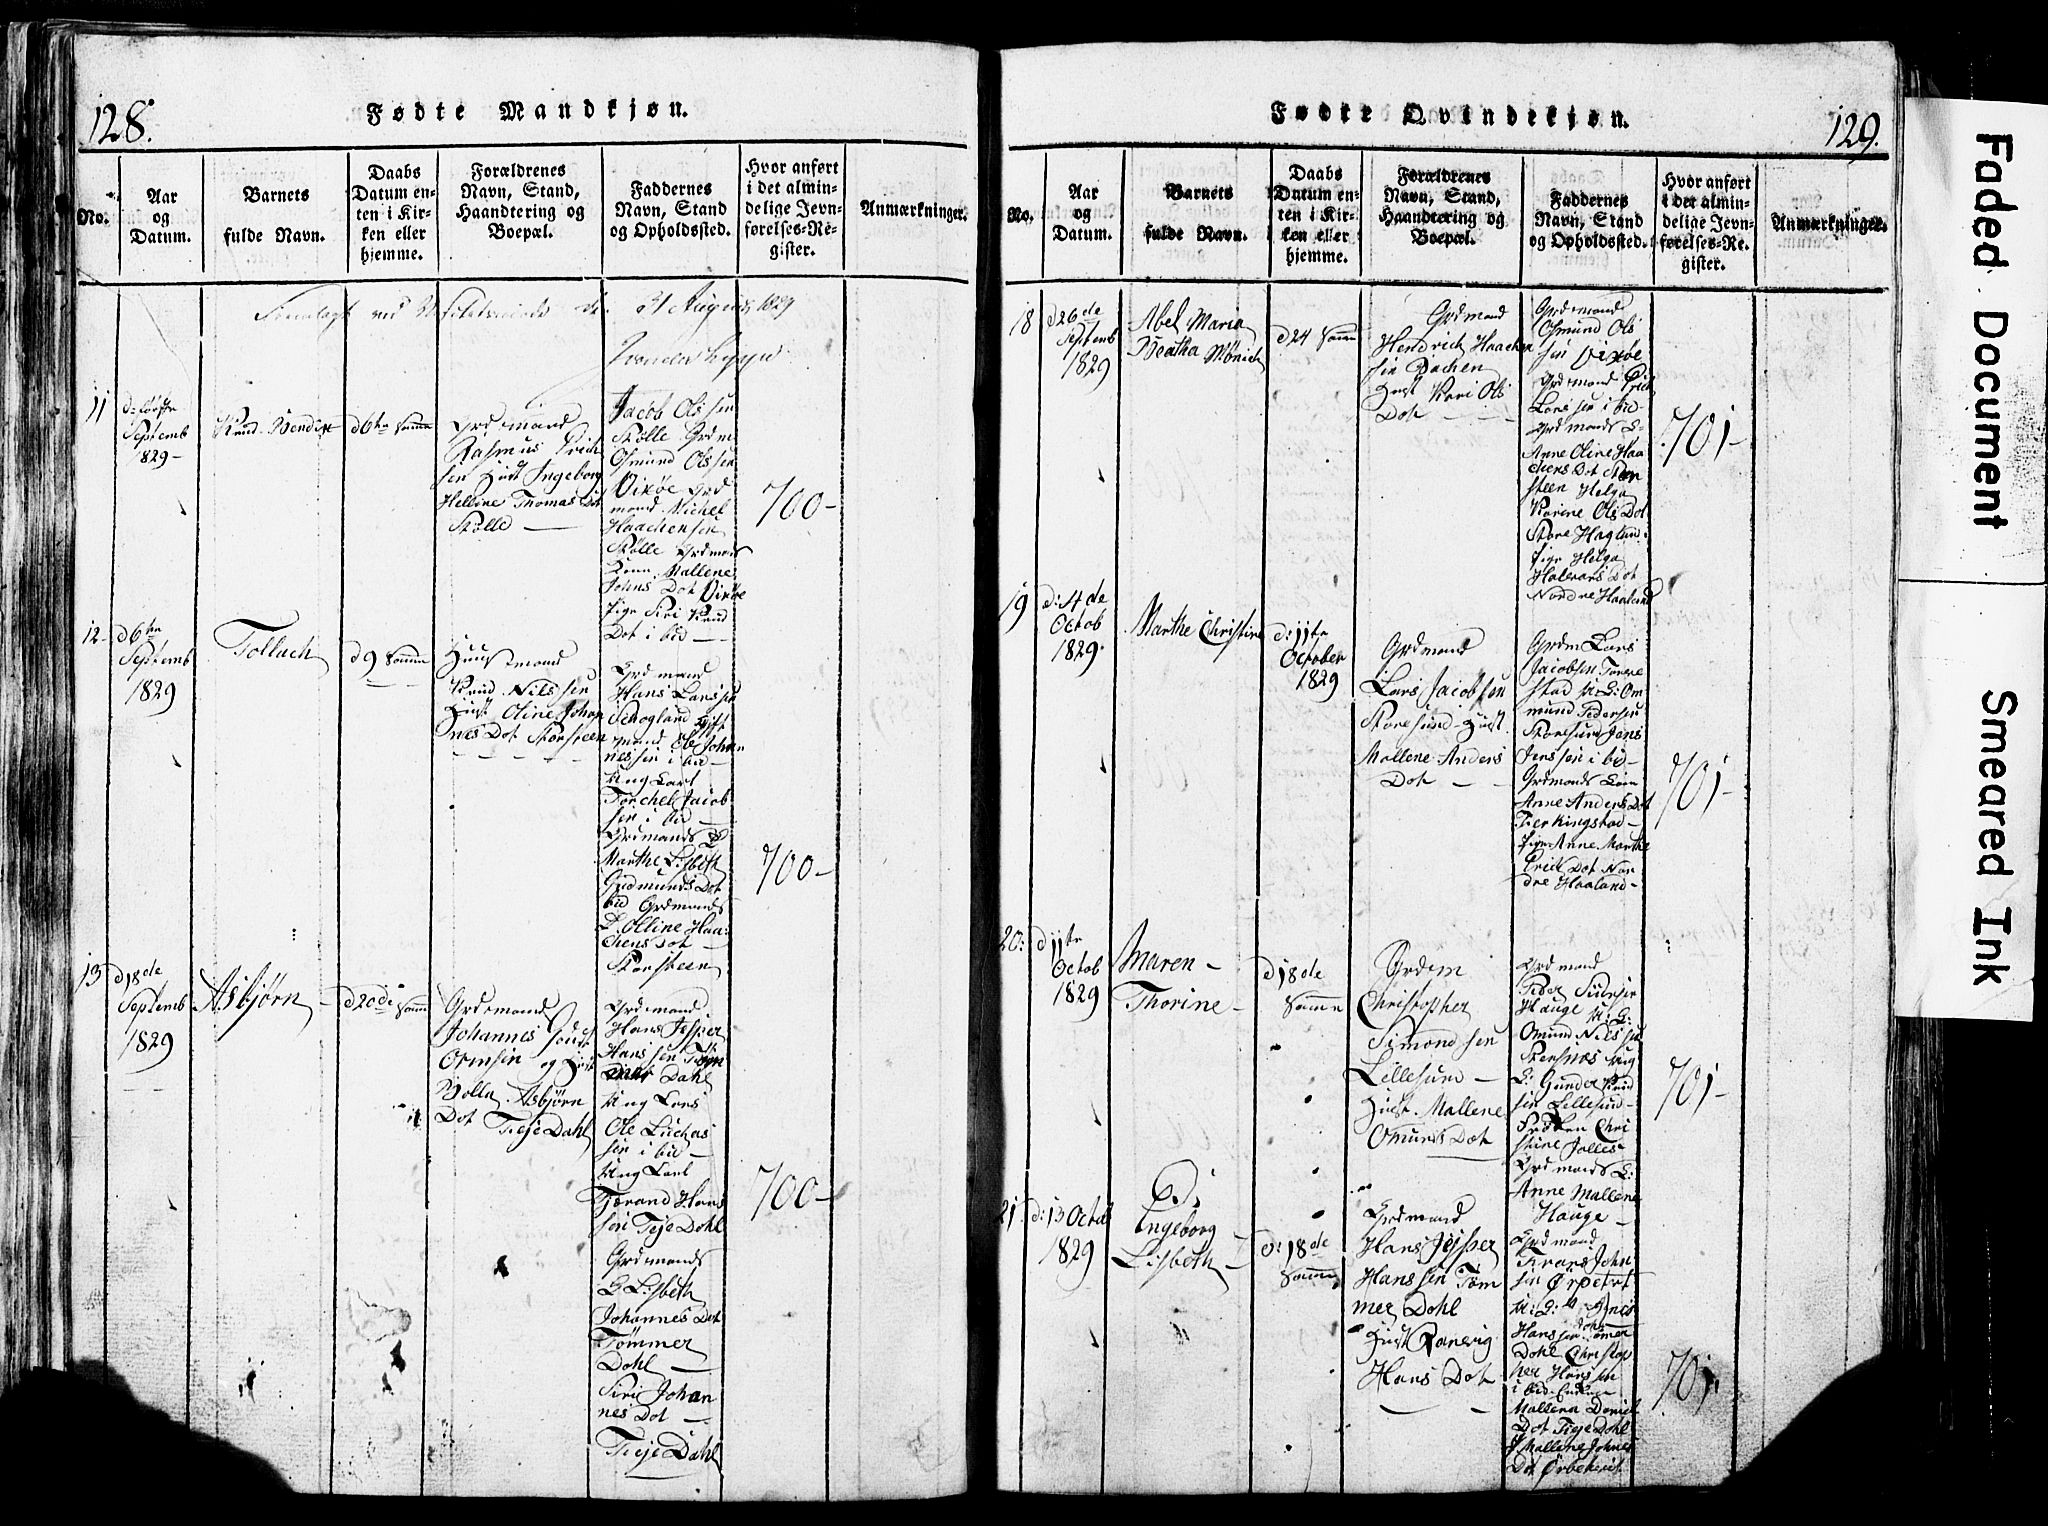 128.
Fødte Mandkjøn.
No.
Aar
og
Datum.
Barnets
fulde Navn.
Daabs
Datum en-
ten i Kir-
ken eller
hjemme.
Forældrenes
Navn, Stand,
Haandtering og
Boepæl.
Faddernes
Navn, Stand
og Opholdssted.
Hvor anført
i det almin-
delige Jevn-
førelses-Re-
gister.
Anmærkninger.
11
Septemb
1829-
d6te Samme
Grdmand
Rasmus Erich
sen Hust Ingeborg
Helline Thomas Dot
Stølle
Jacob Olssen
Stølle Grdm
Osmund Olssen
Vixøe Grd
mand Michel
Haachensen
Stølle Grdmans
Kone Mallene
Johns Dot Vixøe
Pige Siri Knud
Dot i bid
700-
12-
d6te
Septemb
1829
Tollach
d9 Samme
Huusmand
Knud Nilssen
Hust Oline Johan
nes Dot Storsteen
Grdmand
Hans Larssen
Schogland Gift
mand Ole Johan
nessen i bid
Ung Karl
Torchel Jacob
sen i bid
Grdmands
Marthe Lisbeth
Gudmunds Dot
bid Grdmands
K. Olline Haa-
chens Dot
Storsteen
700-
13
d18de
Septemb
1829
Asbjørn
d20de Samme
Grdmand
Johannes
Ormsen og Hust
Bolla Asbjørn
Dot Tieje Dahl
Grdmand
Hans Jesper
Hanssen Tøm
mer Dahl
Ung Kars
Ole Luchas
sen i bid
Ung Karl
Tørand Hans
sen Teje Dohl
Grdmands
K Lisbeth
Johannes Dot
Tømmer
Dohl
Siri Johan
nes Dot
Tieje Dahl
700-
129.
Fødte Qvindekjøn.
No.
Aar
og
Datum.
Barnets
fulde Navn.
Daabs
Datum en-
ten i Kir-
ken eller
hjemme.
Forældrenes
Navn, Stand,
Haandtering og
Boepæl.
Faddernes
Navn, Stand
og Opholdssted.
Hvor anført
i det almin-
delige Jevn-
førelses-Re-
gister.
Anmærkninger.
18
d26de
Septemb
1829
Abel Maria
Beatha Mønich
d24 Samme
Grdmand
Hendrich Haachen
sen Bachen
Hust Kari Ols
Dot
Grdmand
Osmund Ols
sen Vixøe
Grdmand Erich
Larssen i bid-
Grdmands K-
Anne Oline Haa
chens Dot Stor
steen Helga
Karine Ols Dot
Store Haglund
Pige Helga
Halvors Dot
Nordre Haaland
701-
19
d: 4de
Octob
1829.
Marthe Christine
d: 11te
October
1829
Grdmand
Lars Jacobsen
Storesund Hust
Mallene Anders
Dot
Grdm Lars
Jacobsen Tonne
stad U: G: Om
mund Pedersen
Storesund Jens
Jenssen i bid-
Grdmands Kone
Anne Anders Dot
Ferkingstad-
Pige Anne Marthe
Erich Dot Nor
dre Haaland-
701-
20:
d 11te
Octob
1829
Maren-
Thorine-
d18de
Samme
Grdm
Christopher
Simondsen
Lillesund-
Hust. Mallene
Omunds Dot
Grdmand
Peder
Hauge U: G:
Omund Nilssen
Stensnæs Ung
K: Gunder Knud
sen Lillesund-
Frøken Chri
stine Jolles-
Grdmands K:
Anne Mallene
Hauge-
701-
21
d: 13 Octob
1829
Ingeborg
Lisbeth
d: 18de
Samme
Grdmand
Hans Jesper
Hanssen Tøm
mer Dohl
Hust Ranvig
Hans Dot
Grdmand
John
sen
U: G:
Hanssen Tømer
Dohl Christop
her Hanssen
i bid
Mallena Daniel
Dot Tieje Dohl
P Mallene Johnes
Dot
701
Faded Document
Smeared Ink